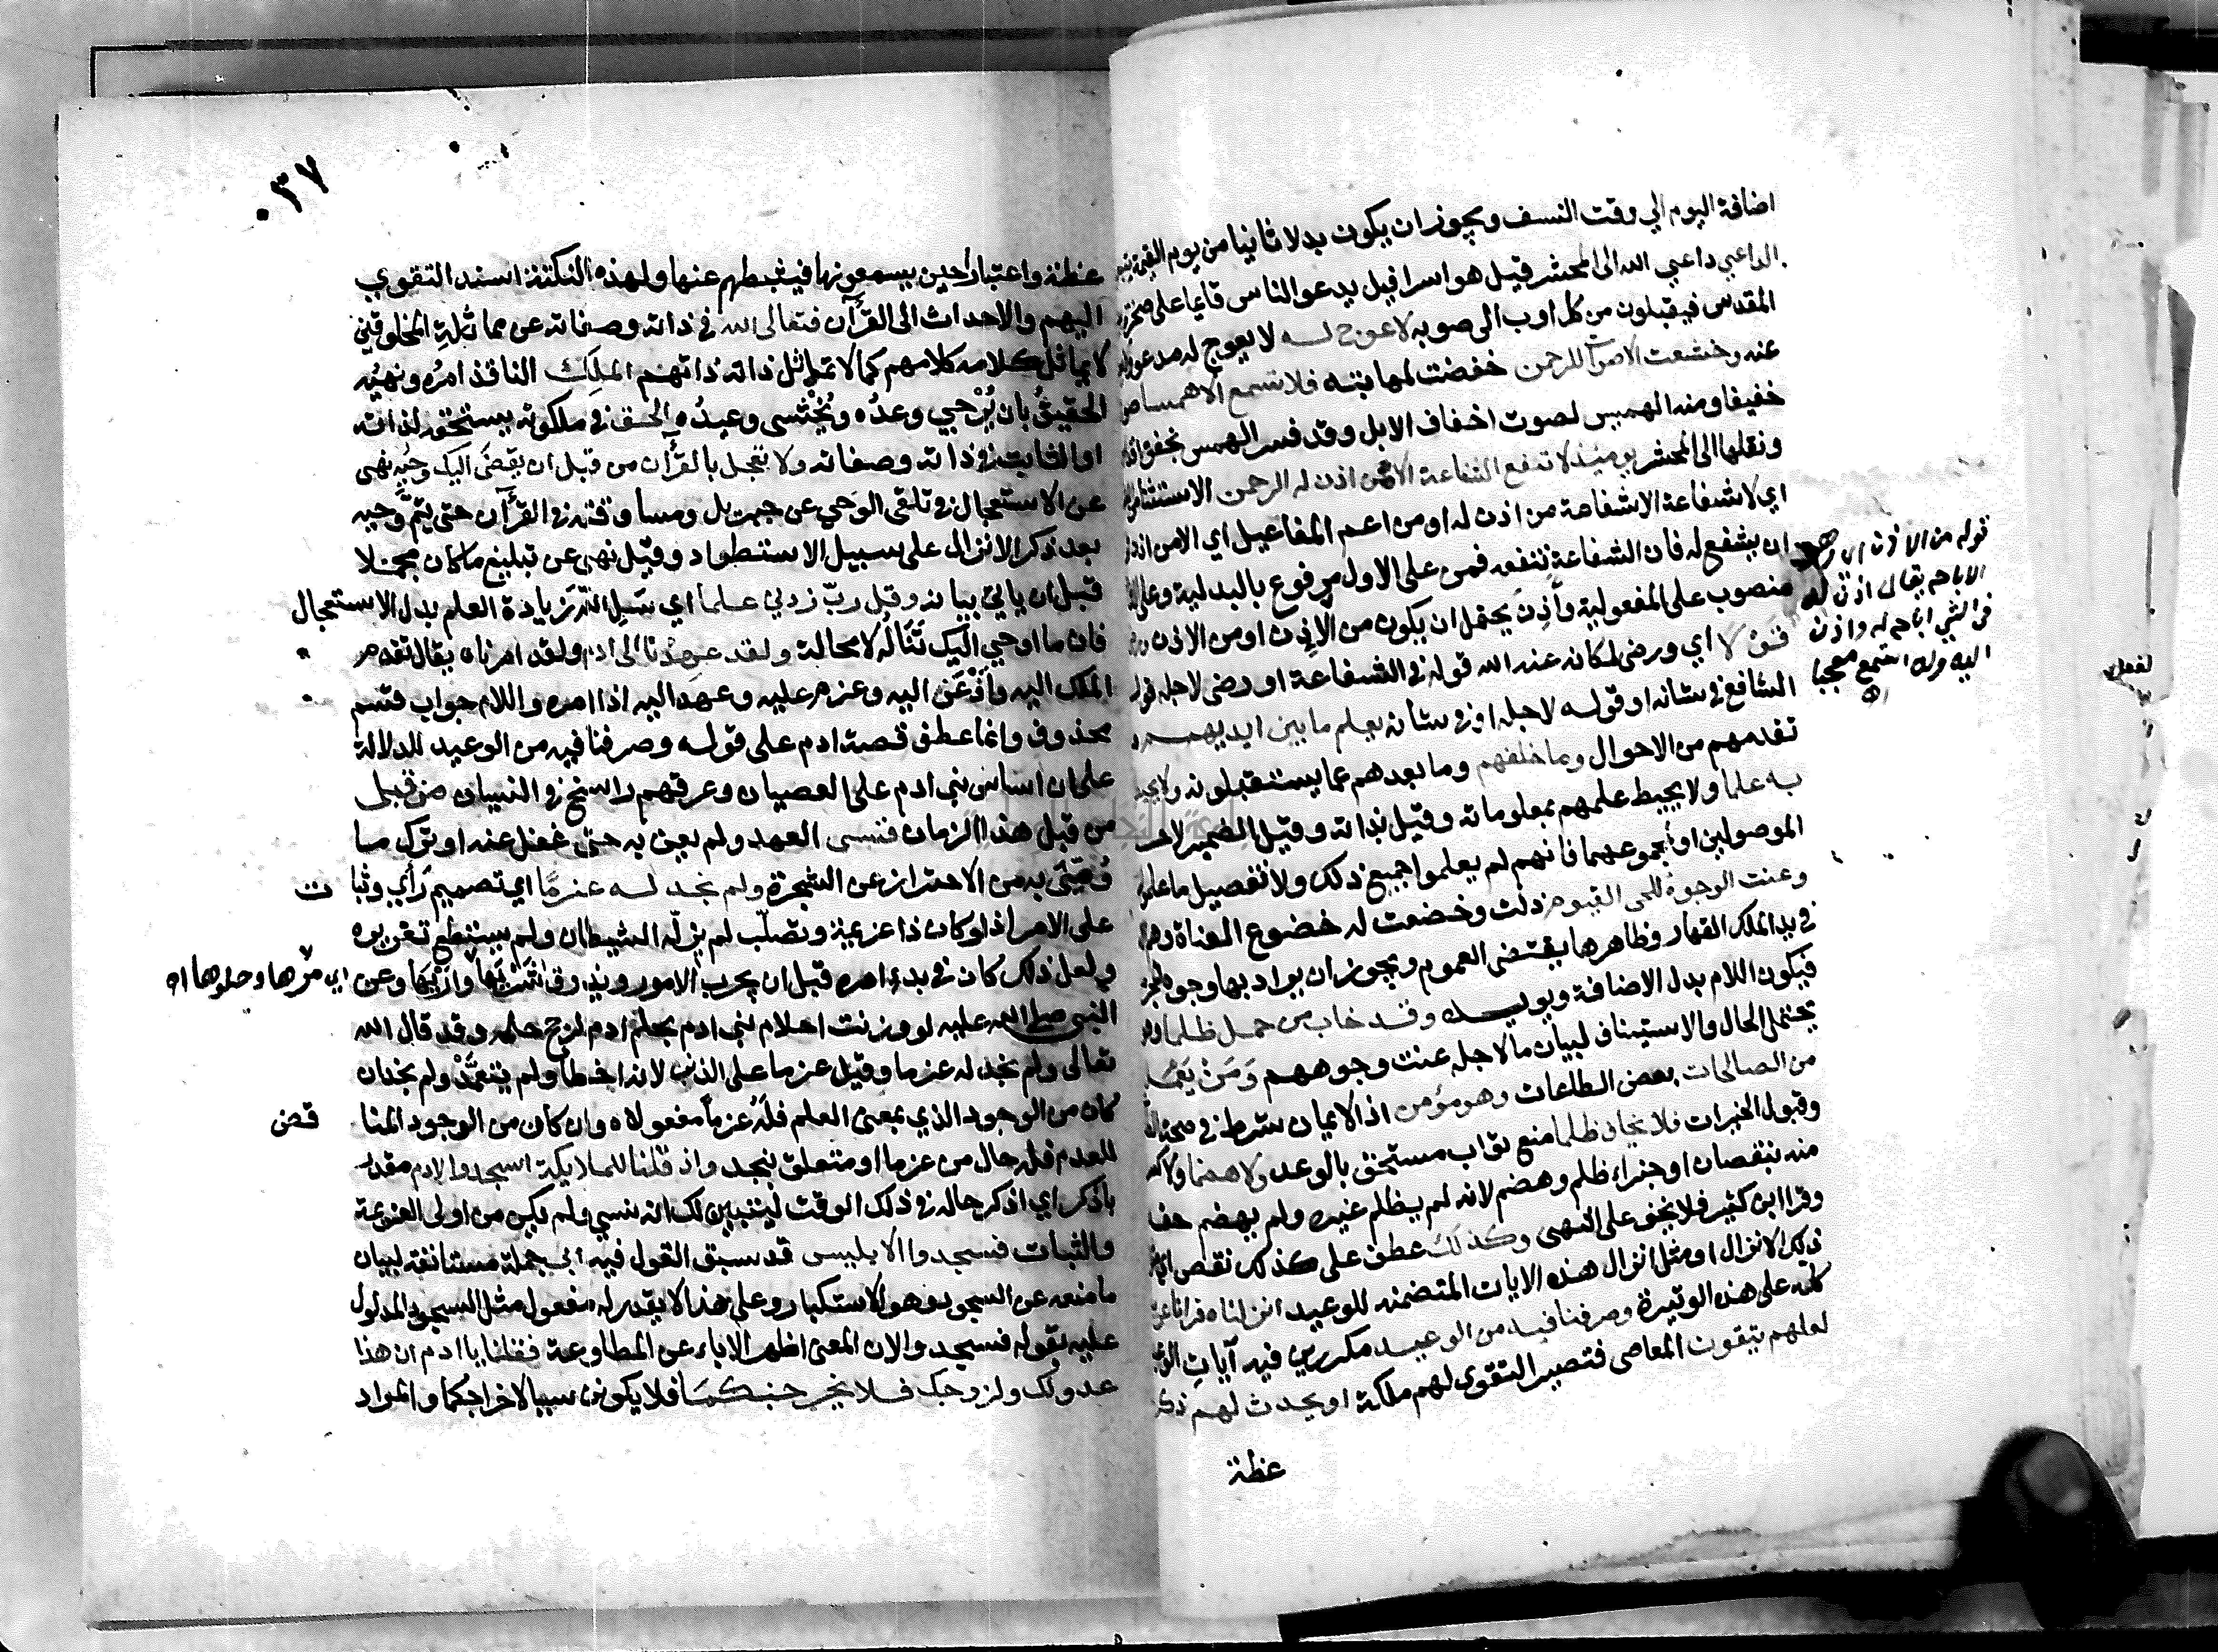 اضافة اليوم الي وقت النسف ويجوز ان يكون بدلا ثانيا من يوم القيمة
الداعي داعي الله الى المحشر قيل هو اسرافيل يدعو الناس قايما على صخرة
المقدس فيقبلون من كل اوب الى صوبه لا عوج لـه لا يعوج له مدعو ولا
عنه وخشعت الاصوات للرحمن خفضت لمهابته فلا تسمع الا همسا
خفيفا ومنه الهميس لصوت اخفاف الابل وقد فسر الهمس بخفق
ونقلها الى المحشر يوميذ لا تنفع الشفاعة الا من اذن له الرحمن الاستثنا
اي لا شفاعة الا شفاعة من اذن له او من اعم المفاعيل اي الا من اذن
ان يشفع له فان الشفاعة تنفعه فمن على الاول مرفوع بالبدلية وعلى
منصوب على المفعولية وأذن يحتمل ان يكون من الاذن او من الاذن
قولا اي ورضى لمكانه عند الله قوله في الشفاعة او رضى لاجله
الشافع في شانه او قولـه لاجله او في شانه يعلم ما بين ايديهـم
تقدمهم من الاحوال وما خلفهم وما بعدهم مما يستقبلونه ولا
به علما ولا يحيط علمهم بمعلوماته وقيل بذاته وقيل الضمير لاحد
الموصولين او لمجموعهما فانهم لم يعلموا جميع ذلك ولا تفصيل ما
وعنت الوجوه للحي القيوم ذلت وخضعت له خضوع العناة
في يد الملك القهار وظاهرها يقتضى العموم ويجوز ان يراد بها وجوه
فيكون اللام بدل الاضافة ويويـده وقـد خاب من حمـل ظلما
يحتمل الحال والاستيناف لبيان ما لاجله عنت وجوههم وَمَنْ يَعْمـل
من الصالحات بعض الطاعات وهو مؤمن اذ الايمان شرط في صحة
وقبول الخيرات فلا يخاف ظلما منع ثواب مستحق بالوعد ولا هضما ولا
منه بنقصان او جزاء ظلم وهضم لانه لم يظلم غيره ولم يهضم حقا
وقرا ابن كثير فلا يخف على النهي وكذلك عطف على كذلك نقص
ذلك الانزال او مثل انزال هذه الايات المتضمنه للوعيد انزلناه قرانا
كله على هذه الوتيرة وصرفنا فيه من الوعيـد مكررين فيه آيات
لعلهم يتقون المعاصي فتصير التقوى لهم ملكة او يحدث لهم
عظة
قوله من الاذن
الاباحه يقال اذن له
في الشي اباحه له واذن
اليه وله استمع معجبا
اه
٣٧
عظة واعتبارا حين يسمعونها فيثبطهم عنها ولهذه النكتة اسند التقوي
اليهم والاحداث الى القرآن فتعالى الله في ذاته وصفاته عن مماثلة المخلوقين
لا يماثل كلامه كلامهم كما لا تماثل ذاته ذاتهم الملك النافذ امرُه ونهيُه
الحقيقُ بان يُرْجي وعدُه ويُخْشى وعيدُه الحق في ملكوته يستحقه لذاته
او الثابت في ذاته وصفاته ولا تعجل بالقرآن من قبل ان يقضى اليك وحيه نهي
عن الاستعجال في تلقى الوحي عن جبريل ومساوقته في القرآن حتى يتم وحيه
بعد ذكر الانزال على سبيل الاستطراد وقيل نهى عن تبليغ ما كان مجملا
قبل ان ياتي بيانه وقل ربّ زدني علما اي سَلِ اللّهَ زيادة العلم بدل الاستعجال
فان ما اوحي اليك تَنَالُه لا محالة ولقد عهدنا الى ادم ولقد امرناه يقال تقدم
الملك اليه وأَوْعَزَ اليه وعزم عليه وعهد اليه اذا امره واللام جواب قسم
محذوف وانما عطف قصة ادم على قولـه وصرفنا فيه من الوعيد للدلالة
على ان اساس بنى ادم على العصيان وعرقهم راسخ في النسيان من قبل
من قبل هذا الزمان فنسى العهد ولم يعن به حتى غفل عنه او ترك ما
وُصِّيَ به من الاحتراز عن الشجرة ولم نجد لـه عزمًا اي تصميم رأي وثبات
على الامر اذ لو كان ذا عزيمة وتصلّب لم يزلّه الشيطان ولم يستطع تغريره
ولعل ذلك كان في بدء امره قبل ان يجرب الامور ويذوق شَرْيَها وأَرْيَها وعن
اي مرّها وحلوها اه
النبي صلى الله عليه لو وزنت احلام بنى ادم بحلم ادم لرجح حلمه وقد قال الله
تعالى ولم نجد له عزما وقيل عزما على الذنب لانه اخطأ ولم يتعمّدْ ولم نجد ان
كان من الوجود الذي بمعنى العلم فلَهُ عزماً مفعولاه وان كان من الوجود المناقض
للعدم فله حال من عزما او متعلق بنجد واذ قلنا للملايكة اسجدوا لادم مقدر
باذكر اي اذكر حاله في ذلك الوقت ليتبين لك انه نسي ولم يكن من اولى العزيمة
والثبات فسجدوا الا ابليس قد سبق القول فيه ابى جملة مستانفة لبيان
ما منعه عن السجود وهو الاستكبار وعلى هذا لا يقدر له مفعول مثل السجود المدلول
عليه بقوله فسجدوا لان المعنى اظهر الاباء عن المطاوعة فقلنا يا ادم ان هذا
عدو لك ولزوجك فـلا يخرجنـكـما فلا يكونن سببا لاخراجكما والمراد